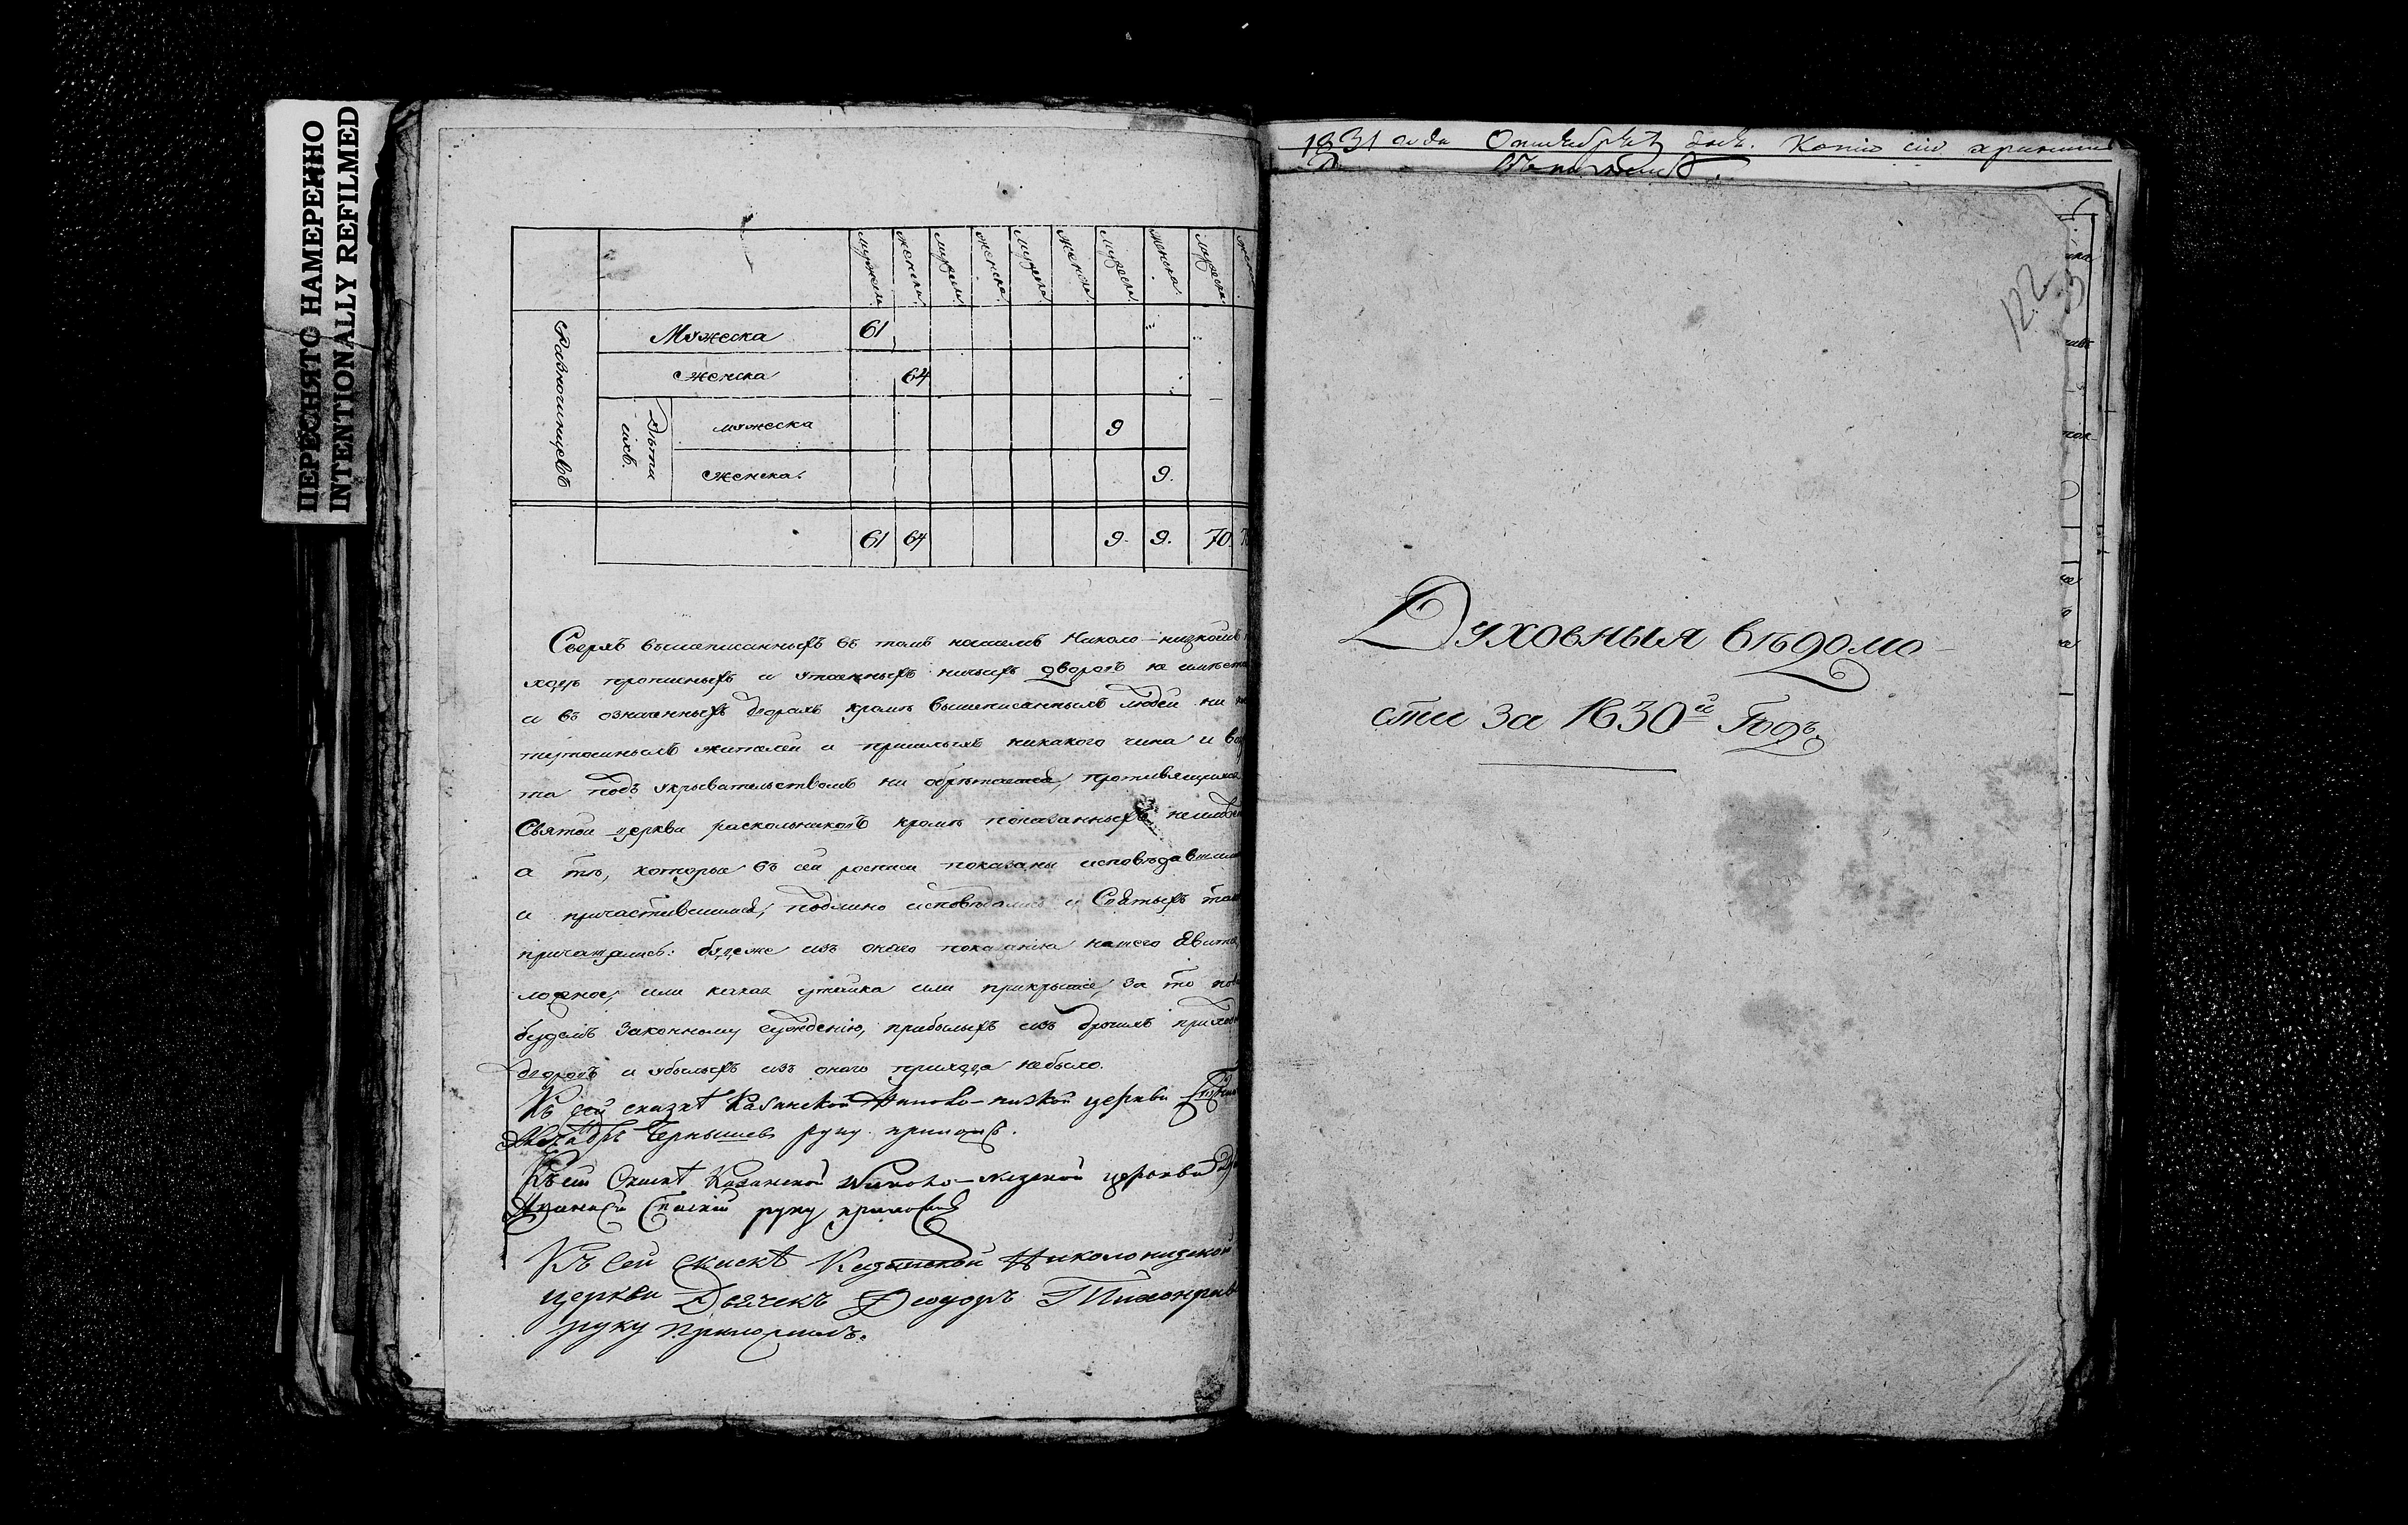 ПЕРЕСНЯТО НАМЕРЕННО
INTENTIONALLY REFILMED
мужеска женска мужеска женска мужеска женска мужеска женска мужеска
Разночинцевъ
Мужеска 61
Женска 64
Дѣти ихъ.
мужеска 9
Женска. 9.
61 64 9. 9. 70.
Сверхъ вышеписанныхъ въ томъ нашемъ Николо-низкомъ
ходѣ прописныхъ и утаенныхъ ничьихъ дворовъ не имѣется
а въ означенныхъ дворахъ кромѣ вышеписанныхъ людей ни
жителей и пришлыхъ никакого чина и
та подъ укрывательствомъ ни обрѣтается, противящихся
Святой церкви раскольниковъ кромѣ показанныхъ
а тѣ, которые въ сей росписи показаны исповѣдавшими
и причастившимися, подлинно исповѣдались и Святыхъ
причащались: будеже изъ онаго показанія нашего явится
ложное, или какая утайка или прикрытіе, за то
будемъ законному сужденію, прибылыхъ изъ другихъ
дворовъ и убылыхъ изъ онаго прихода небыло.
Къ сей сказкѣ Казанской Николо-низкой церкви
Чернышевъ руку приложилъ.
Къ сей Скаскѣ Казанской Николо-низской церкви
Спаскій руку приложилъ
Къ сей скаскѣ Казанской Николонизской
церкви Дьячекъ Феодоръ
руку приложилъ.
1831 года Копію сію
122
Духовныя вѣдомо-
сти за 1830й Годъ.